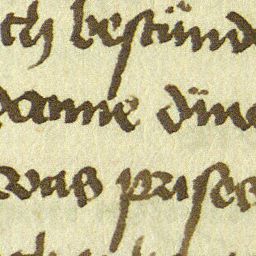 ch bestünd
danne din
was prises